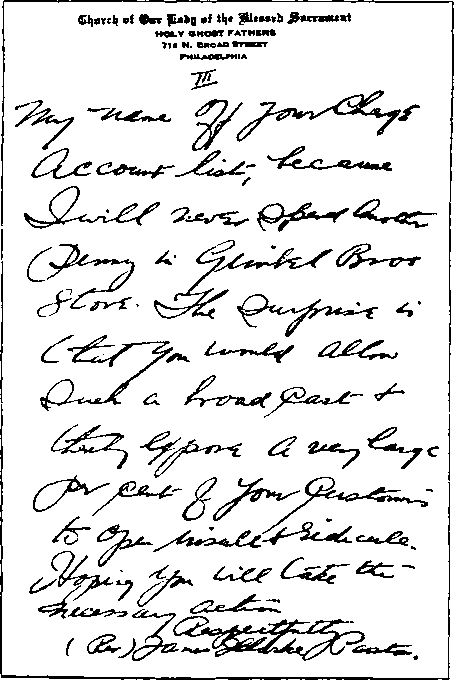 Church of Our Lady of the Blessed Sacrament
HOLY GHOST FATHERS
718 N. BROAD STREET
PHILADELPHIA
III
My name off your Charge
Account list, because
I will never spend another
Penny in Gimbel Bros
Store. The Surprise is
that you would allow
such a broad cast &
thereby expose a very large
per cent of your Customers
to open insult & ridicule.
Hoping you will take the
necessary action
Respectfully
(Rev) James Pastor.